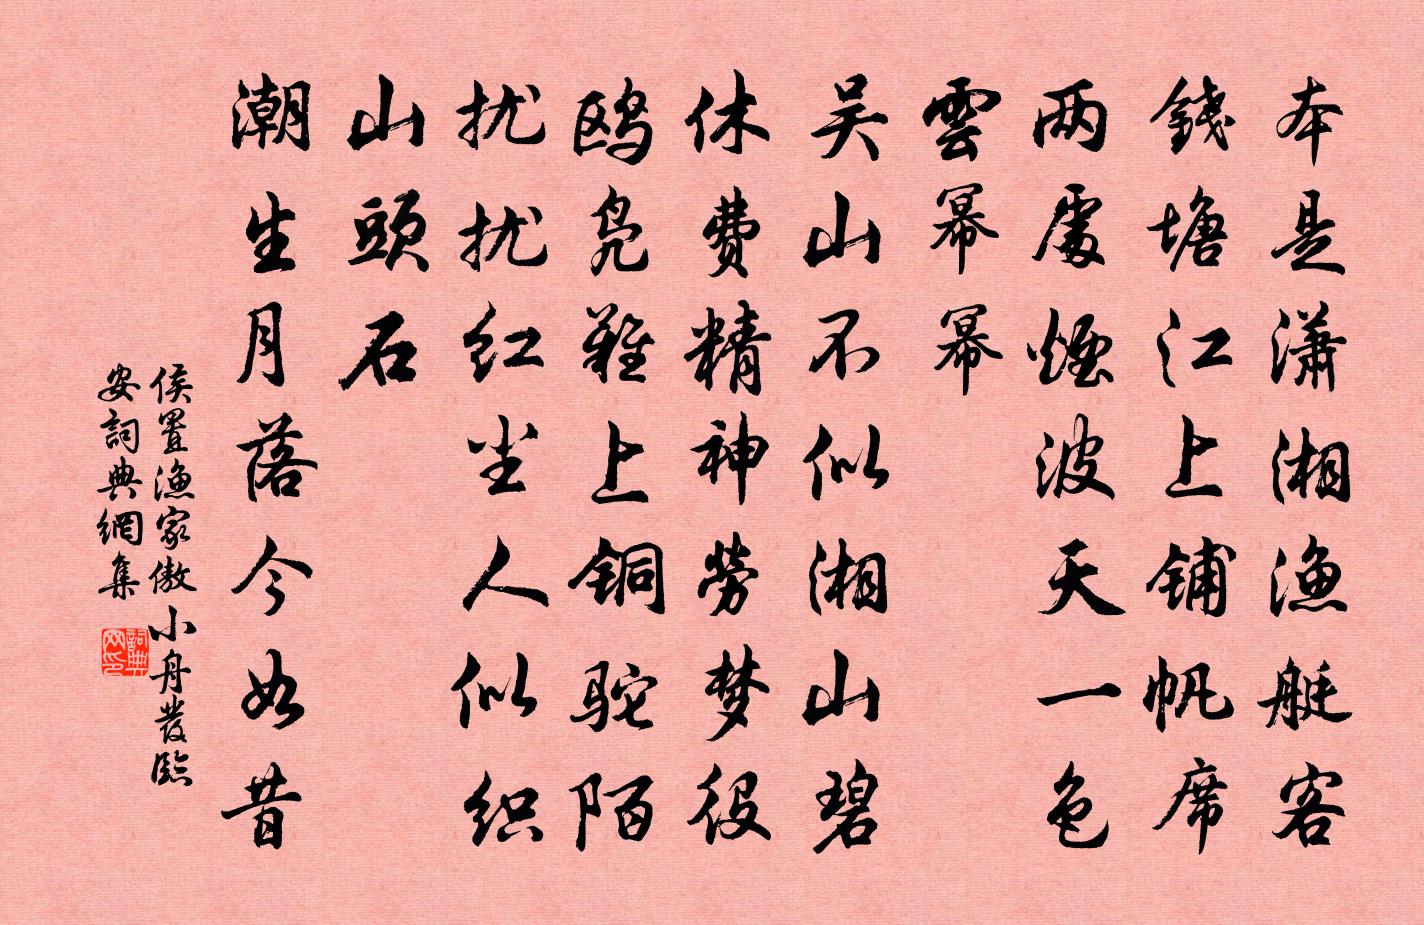 本是瀟湘渔艇客
錢塘江上铺帆席
两處煙波天一色
雲幂幂
吴山不似湘山碧
休费精神劳梦役
鸥凫難上铜驼陌
扰扰红尘人似织
山頭石
潮生月落今如昔
侯置渔家傲 小舟发臨
安詞典網集
詞典网印